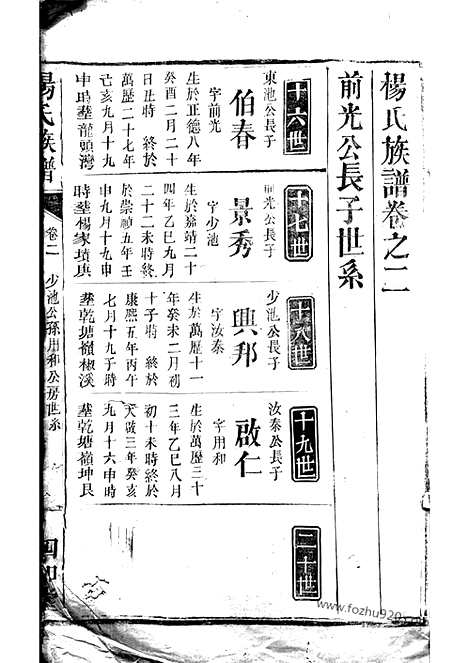 楊氏族譜卷之二
前光公長子世系
十六世
東池公長子
伯春
字前光
生於正德八年
癸酉二月二十
日丑時 終於
萬歷二十七年
己亥九月十九
申時塟龍頭灣
十七世
前光公長子
景秀
字少池
生於嘉靖二十
四年乙巳九月
二十二未時終
於崇禎五年壬
申九月十九申
時塟楊家墳埧
十八世
少池公長子
興邦
字汝泰
生於萬歷十一
年癸未二月初
十子時 終於
康熙五年丙午
七月十九子時
塟乾塘嶺椒溪
十九世
汝泰公長子
啟仁
字用和
生於萬歷三十
三年乙巳八月
初十未時終於
天啟三年癸亥
九月十六申時
塟乾塘嶺坤艮
二十世
楊氏族譜
卷二
少池公孫用和公房世系
一
四知
www.fozhu920.com